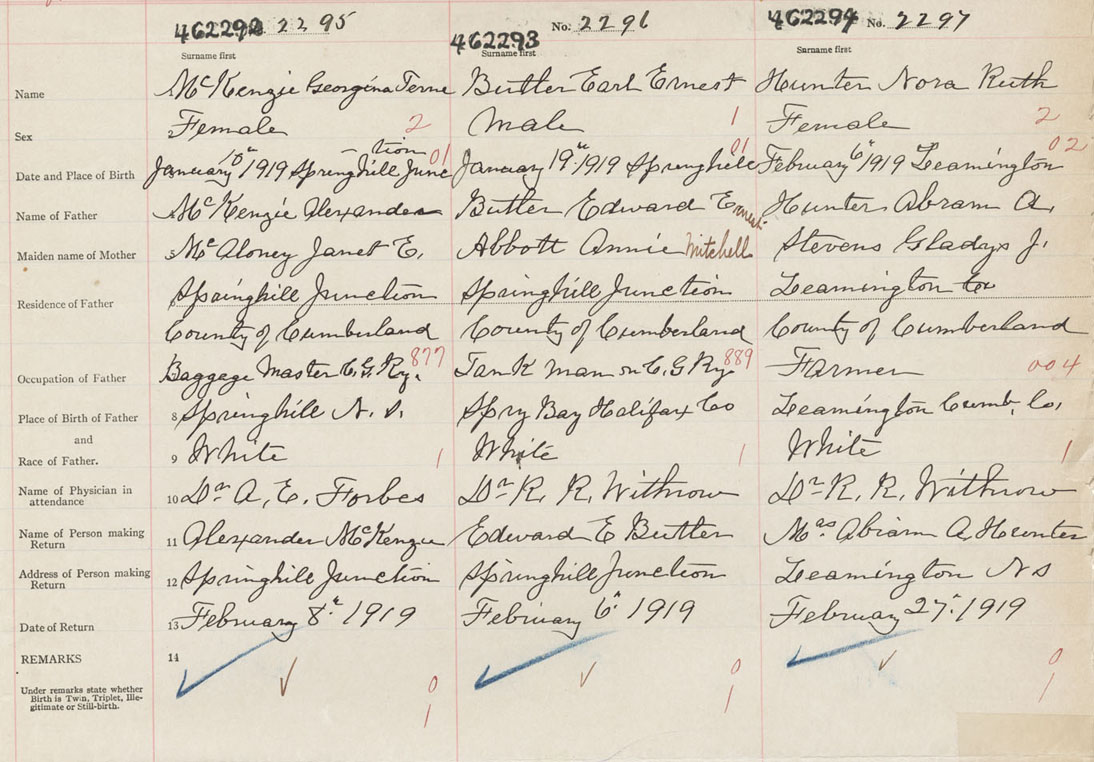 462292 2295
No. 2296
462293
462294 No. 2297
Surname first
Surname first
Surname first
Name McKenzie Georgina Butler Earl Ernest Hunter Nora Ruth
Sex 2 Female 2 Male 1 Female 2
tion 01 01 02
Date and Place of Birth January 10th 1919 Springhill Junc January 19th 1919 Springhill February 6th 1919 Leamington
Name of Father McKenzie Alexander Butler Edward Ernest Hunter Abram A.
Maiden name of Mother McAloney Janet E. Abbott Annie Mitchell Stevens Gladys J.
Residence of Father Springhill Junction Springhill Junction Leamington
County of Cumberland County of Cumberland County of Cumberland
Occupation of Father Baggage Master C.G.Ry. 877 Tank man on C.G Ry 889 Farmer 004
Place of Birth of Father 8 Springhill N.S. Spry Bay Halifax Co Leamington Cumb. Co.
and
Race of Father. 9 White 1 White 1 White 1
Name of Physician in attendance 10 Dr A. E. Forbes Dr R. R. Withrow Dr R. R. Withrow
Name of Person making Return 11 Alexander McKenzie Edward E Butler Mrs Abram A. Hunter
Address of Person making Return 12 Springhill Junction Springhill Junction Leamington NS
Date of Return 13 February 8th 1919 February 6th 1919 February 27th 1919
REMARKS 14
Under remarks state whether
Birth is Twin, Triplet, Ille-
gitimate or Still-birth.
0 0 0
1 1 1